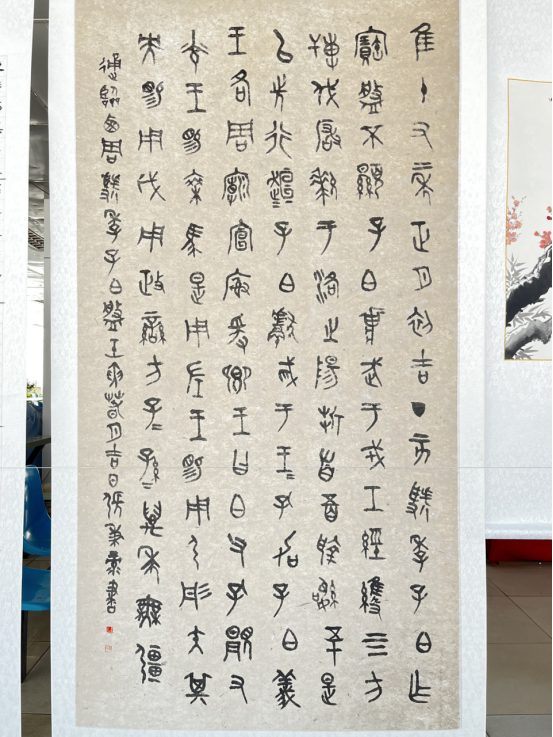 隹十又二年正月初吉丁亥虢季子白乍
寶盤不顯子白壯武于戎工經維四方
搏伐玁狁于洛之陽折首五百執訊五十是
以先行桓〻子白獻馘于王〻孔加子白義
王各周廟宣榭爰鄉王曰白父孔顯又
光王賜乘馬是用左王賜用弓彤矢其
央賜用戉用政蠻方子〻孫〻萬年無疆
通臨西周虢季子白盤壬寅月吉日張秉書